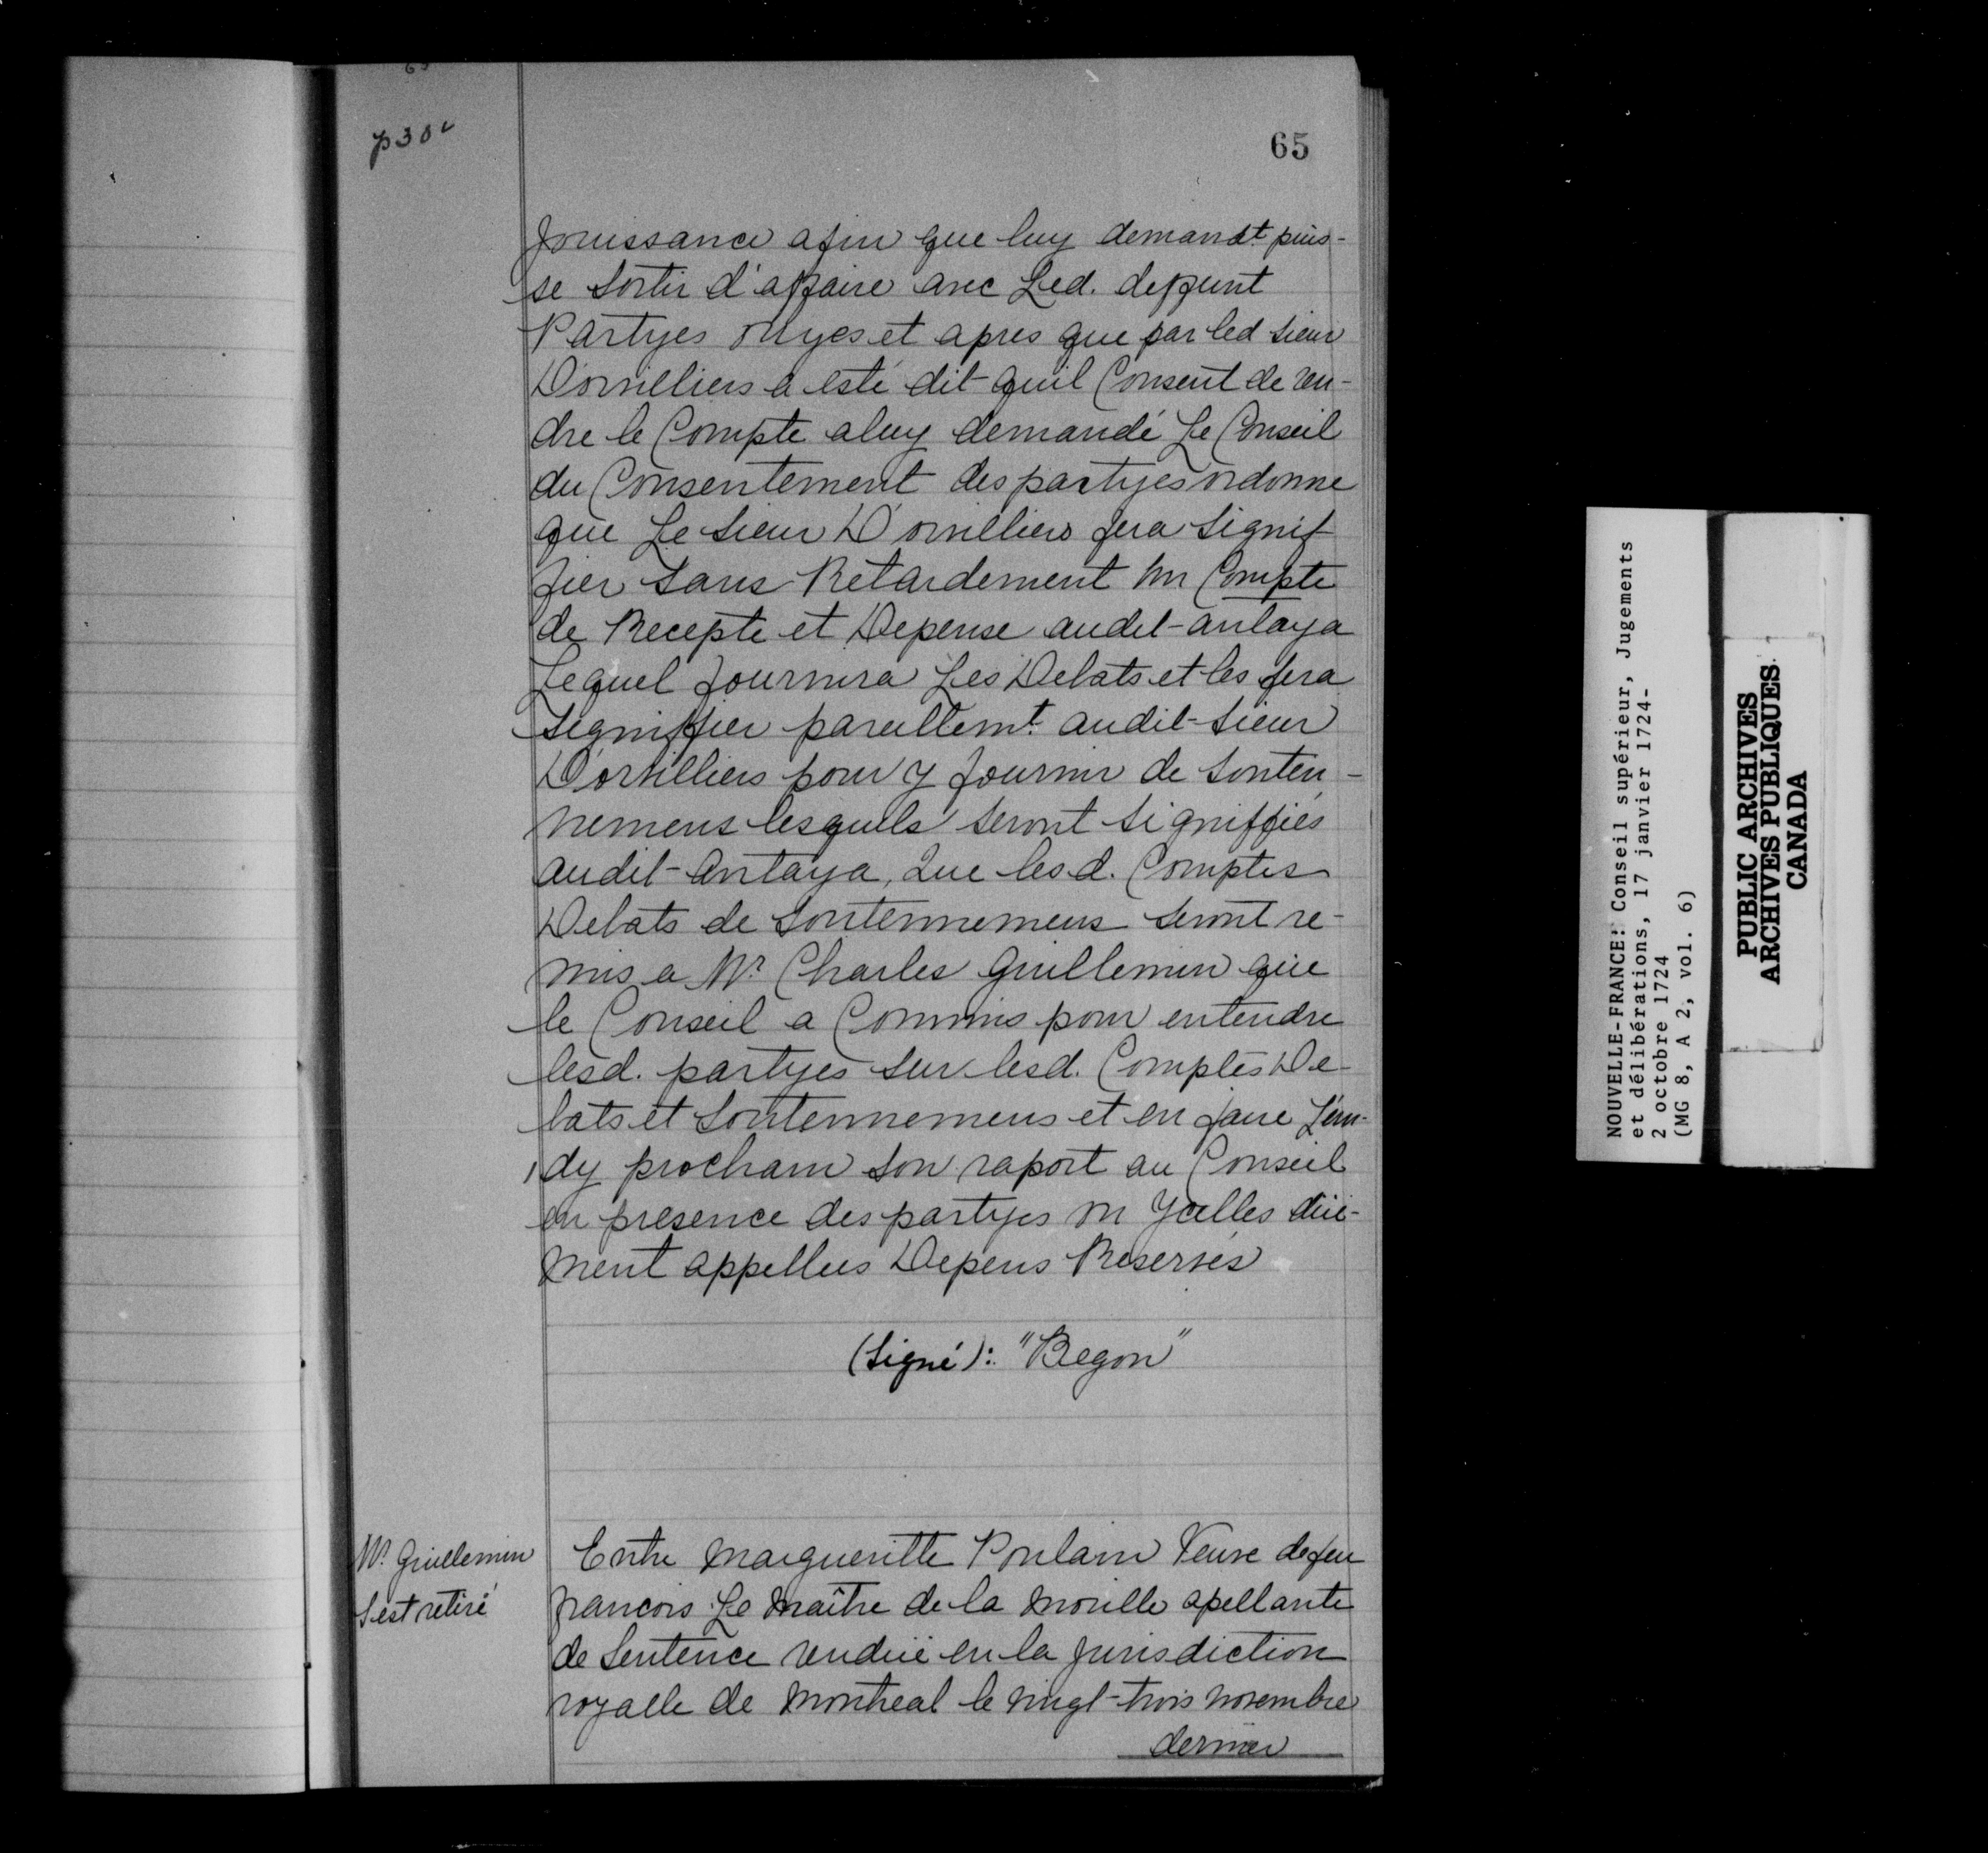 p 30
65
Jouissance afin que luy demandt. puis-
se Sortir d'affaire avec Led. deffunt
Partyes ouyes et apres que par led Sieur
Dorvilliers a esté dit quil Consent de ren-
dre le Compte aluy demandé Le Conseil
du Consentement des partyes ordonne
que Le Sieur D'orvilliers fera Signif
fier Sans Retardement un Compte
de Recepte et Depense audit-antaya
Lequel fournira Les Debats et les fera
Signiffier pareillemt. audit-Sieur
D'orvilliers pour y fournir de Souten-
nemens lesquels Seront Signiffiés
audit-Antaya, Que lesd. Comptes
Debats de Soutennemens Seront re-
mis a Mr. Charles Guillemin que
le Conseil a Commis pour entendre
lesd. partyes Sur lesd. Comptes De-
bats et Soutennemens et en faire Lun-
dy prochain Son raport au Conseil
en presence des partyes ou Ycelles düe-
ment appellées Depens Reservés
(Signé): "Begon"
Mr. Guillemin
S'est retiré
Entre Margueritte Poulain Veuve de feu
francois Le Maître de la Morille apellante
de Sentence rendüe en la Jurisdiction
royalle de Montreal le vingt-trois novembre
dernier
NOUVELLE-FRANCE: Conseil supérieur, Jugements
et délibérations, 17 janvier 1724-
2 octobre 1724
(MG 8, A 2, vol. 6)
PUBLIC ARCHIVES
ARCHIVES PUBLIQUES
CANADA